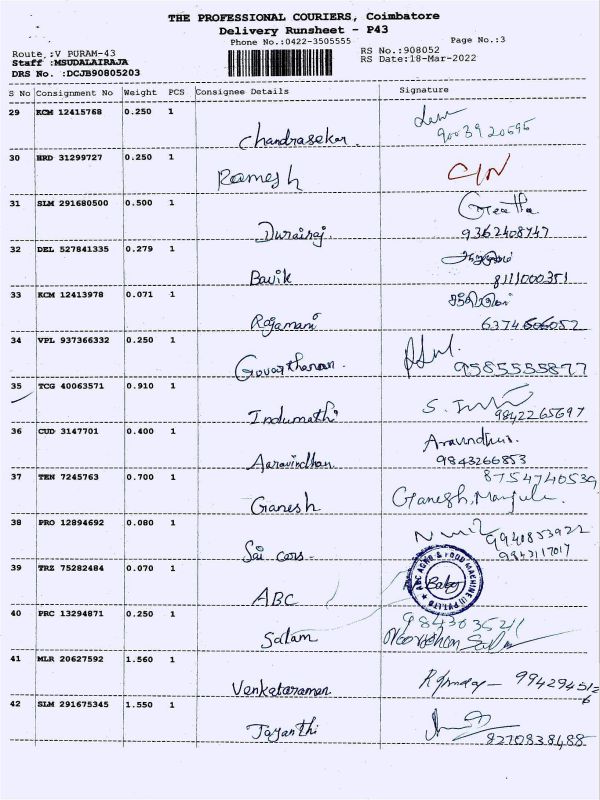 THE PROFESSIONAL COURIERS, Coimbatore
Delivery Runsheet - P43
Phone No.:0422-3505555
Page No.:3
Route :V PURAM-43
RS No.:908052
Staff :MSUDALAIRAJA
RS Date:18-Mar-2022
DRS No. :DCJB90805203
S No Consignment No Weight PCS Consignee Details Signature
29 KCM 12415768 0.250 1
Chandrasekar. 9003920695
30 HRD 31299727 0.250 1
Ramesh C/N
31 SLM 291680500 0.500 1 Geetha
Durairaj. 9362408747
32 DEL 527841335 0.279 1
Bavik 8111000351
33 KCM 12413978 0.071 1
Rajamani 6374606052
34 VPL 937366332 0.250 1
Govartharan. 9585555877
35 TCG 40063571 0.910 1
Indumathi 9842265697
36 CUD 3147701 0.400 1 Aravindhan.
Aaravindhan 9843266853
37 TEN 7245763 0.700 1 8754740539
Ganesh Ganesh, Manjula.
38 PRO 12894692 0.080 1 9940853922
Sai cars - 9943117017
39 TRZ 75282484 0.070 1 ABC AGRO & FOOD MACHINE (I) PVT LTD
ABC
40 PRC 13294871 0.250 1 9843035211
Salam
41 MLR 20627592 1.560 1
Venkataraman 9942945126
42 SLM 291675345 1.550 1
Jayanthi 8270838488